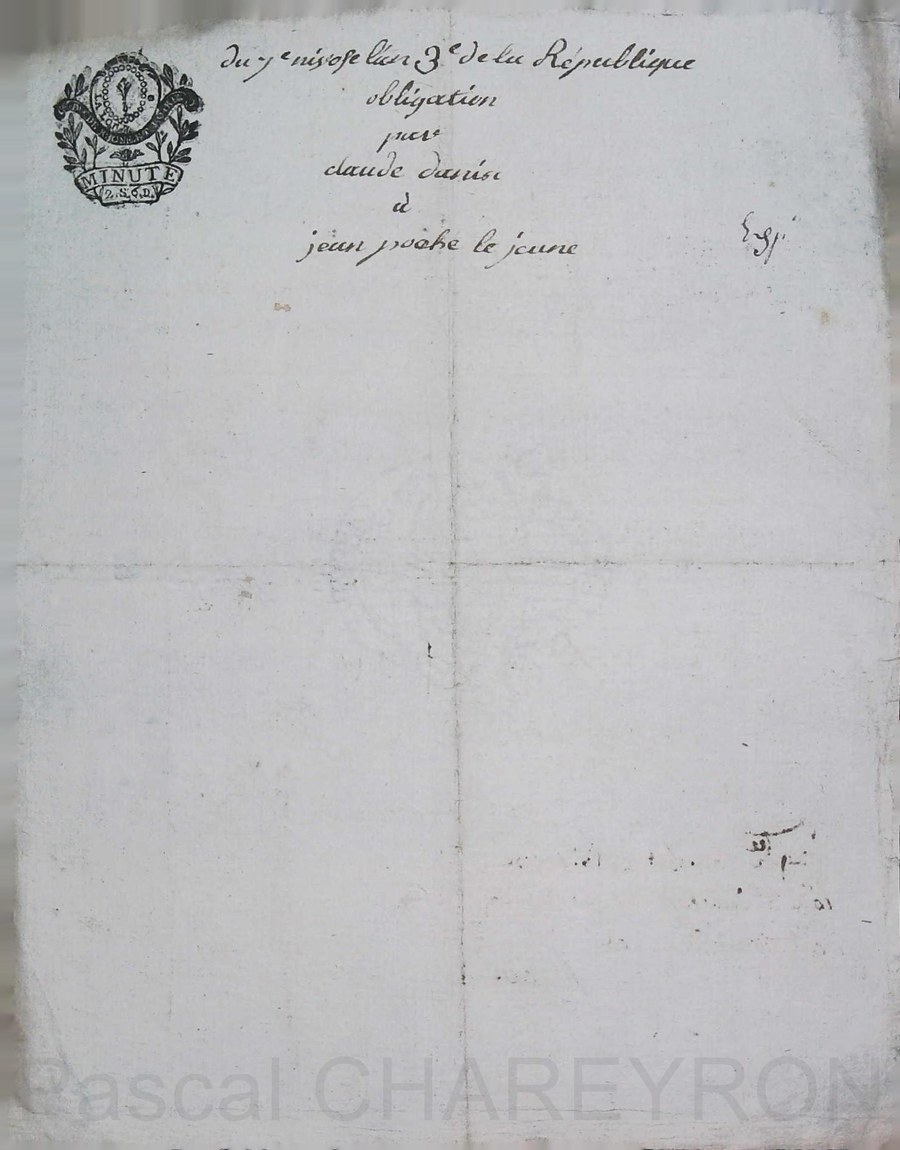 du 7e nivose l'an 3e de la République
obligation
par
claude danis
à
jean poche le jeune
MINUTE
2.S.6.D.
Pascal CHAREYRON